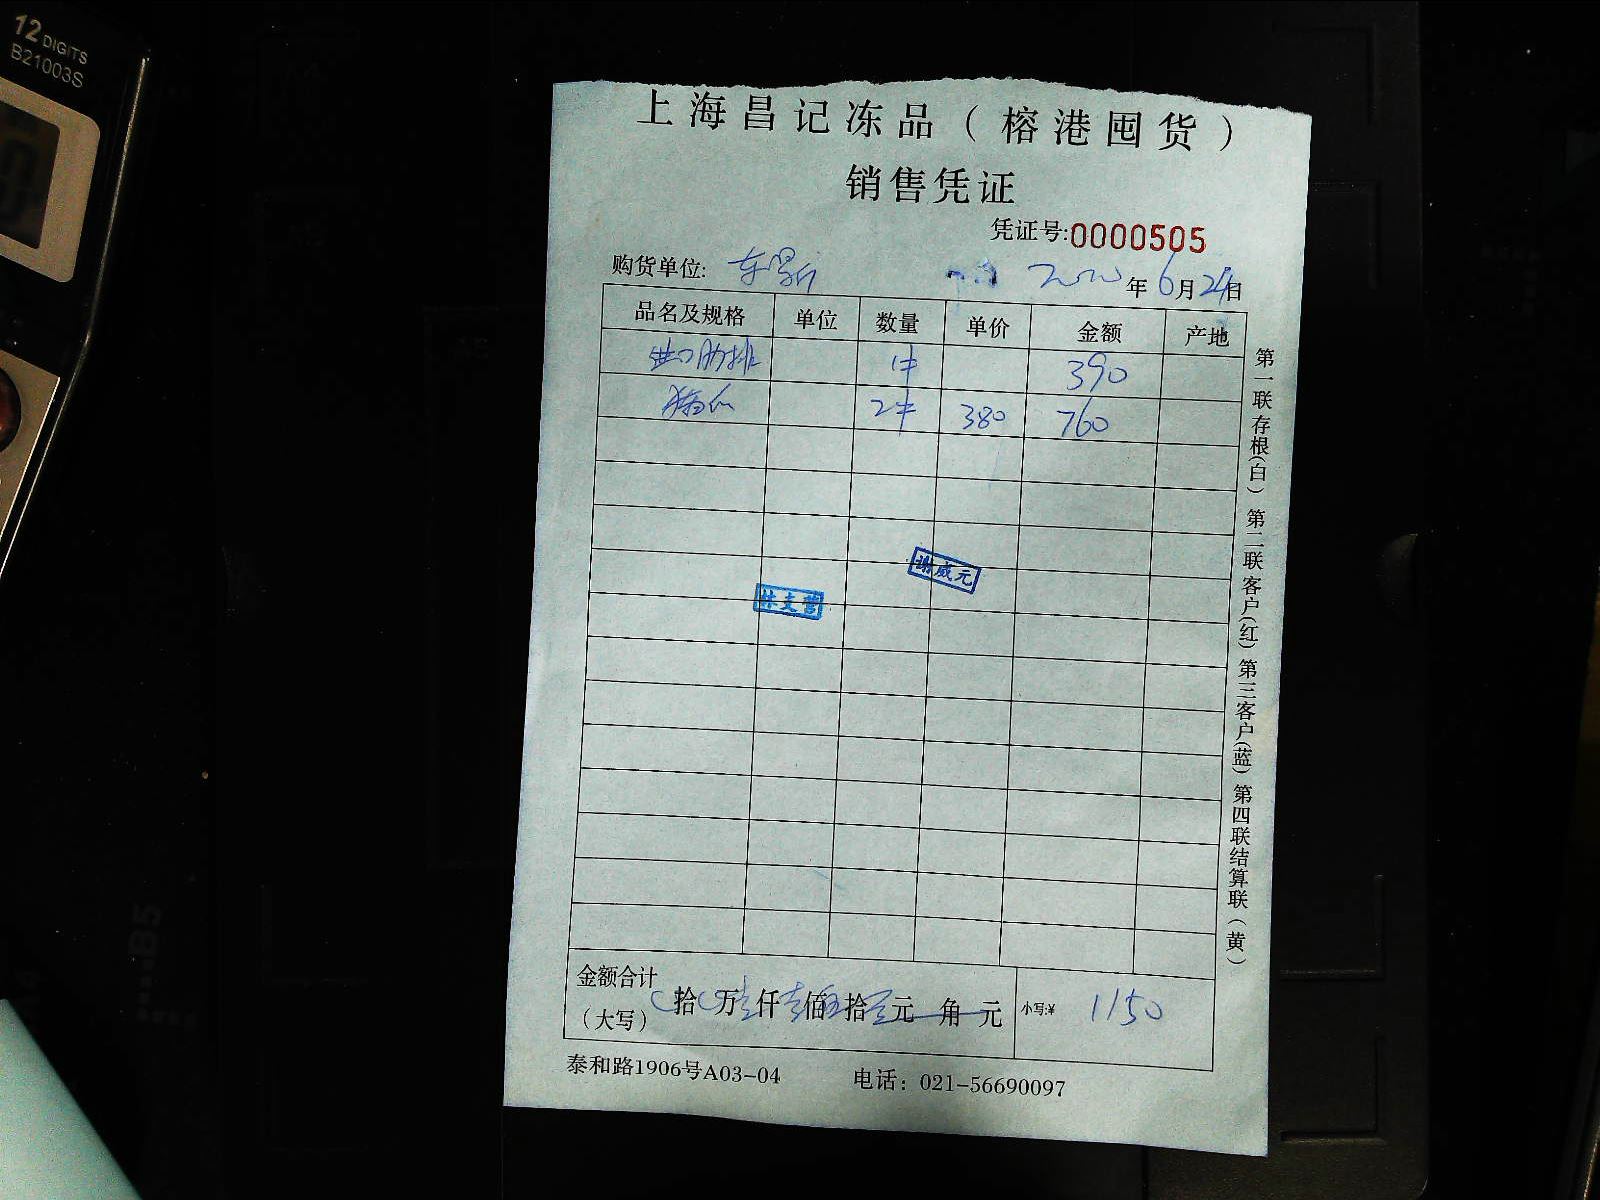 12 DIGITS
B21003S
上海昌记冻品（榕港囤货）
销售凭证
凭证号:0000505
购货单位: 2020年6月24日
品名及规格 单位 数量 单价 金额 产地
进口肋排 1件 390
2件 380 760
谢威元
林支营
金额合计
（大写） 拾 万 仟 佰 拾 元 角 元 小写:¥ 1150
泰和路1906号A03-04 电话：021-56690097
第一联存根(白) 第二联客户(红) 第三客户(蓝) 第四联结算联(黄)
B5